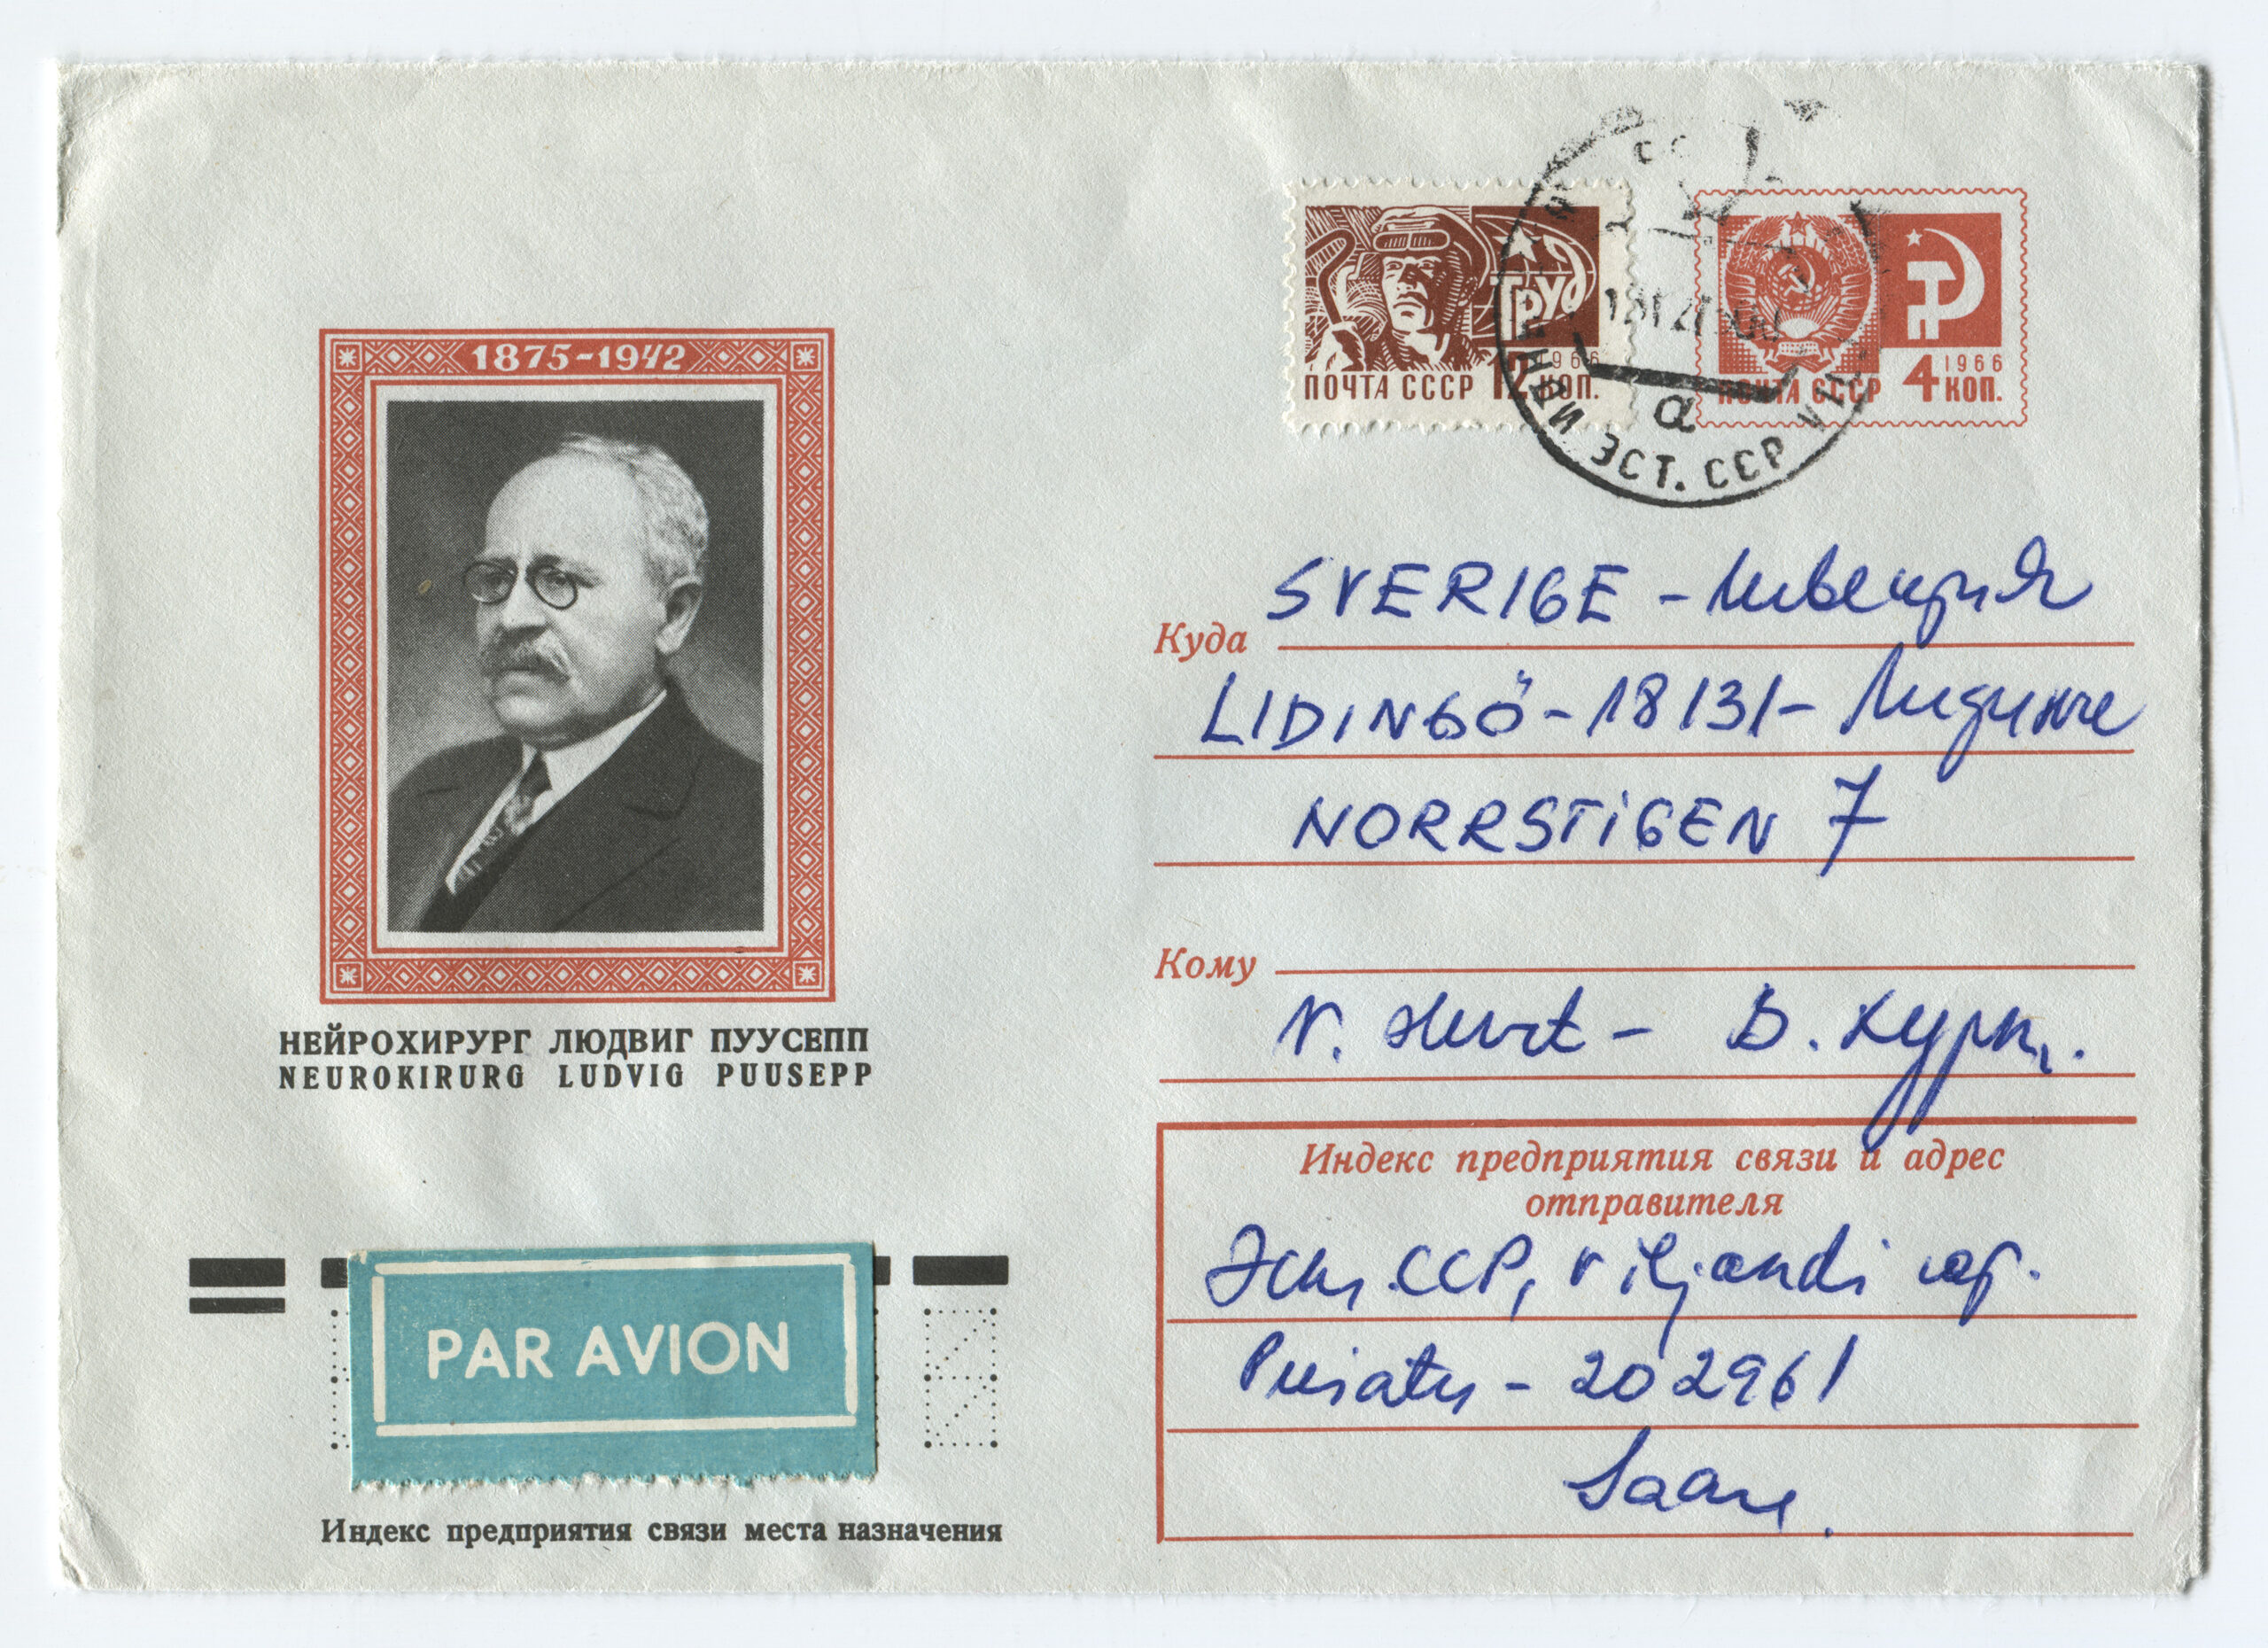 1875-1942
НЕЙРОХИРУРГ ЛЮДВИГ ПУУСЕПП
NEUROKIRURG LUDVIG PUUSEPP
PAR AVION
Индекс предприятия связи места назначения
Труд
1966
ПОЧТА СССР 12 КОП.
1966
ПОЧТА СССР 4 КОП.
а
ЭСТ. ССР
Куда SVERIGE - Швеция
LIDINGÖ - 18131 - Лидинге
NORRSTIGEN 7
Кому
V. Hurt - В. Хурт.
Индекс предприятия связи и адрес
отправителя
Эст. ССР, Viljandi
Puiatu - 202961
Saare.